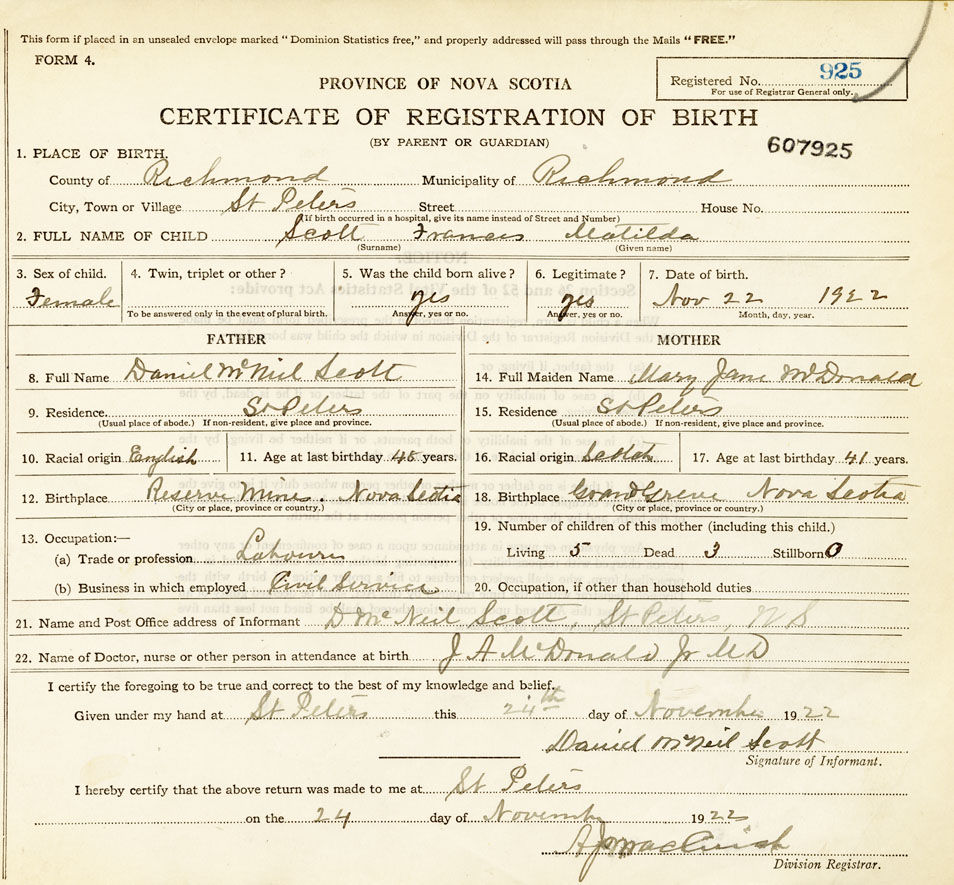 This form if placed in an unsealed envelope marked "Dominion Statistics free," and properly addressed will pass through the Mails "FREE."
FORM 4.
Registered No. 925
For use of Registrar General only.
PROVINCE OF NOVA SCOTIA
CERTIFICATE OF REGISTRATION OF BIRTH
(BY PARENT OR GUARDIAN)
607925
1. PLACE OF BIRTH.
County of Richmond Municipality of Richmond
City, Town or Village St Peters Street House No.
(If birth occurred in a hospital, give its name instead of Street and Number)
2. FULL NAME OF CHILD Scott Frances Matilda
(Surname) (Given name)
3. Sex of child. 4. Twin, triplet or other? 5. Was the child born alive? 6. Legitimate? 7. Date of birth.
Female yes yes Nov 22 1922
To be answered only in the event of plural birth. Answer, yes or no. Answer, yes or no. Month, day, year.
FATHER MOTHER
8. Full Name Daniel McNeil Scott 14. Full Maiden Name Mary Jane McDonald
9. Residence. St Peters 15. Residence St Peters
(Usual place of abode.) If non-resident, give place and province. (Usual place of abode.) If non-resident, give place and province.
10. Racial origin English 11. Age at last birthday 48 years. 16. Racial origin Scotch 17. Age at last birthday 41 years.
12. Birthplace Reserve Mines. Nova Scotia 18. Birthplace Grand Greve Nova Scotia
(City or place, province or country.) (City or place, province or country.)
19. Number of children of this mother (including this child.)
13. Occupation:—
(a) Trade or profession Labourer Living 5 Dead 3 Stillborn 0
(b) Business in which employed Civil Service 20. Occupation, if other than household duties
21. Name and Post Office address of Informant D McNeil Scott, St Peters, N S
22. Name of Doctor, nurse or other person in attendance at birth J A McDonald Jr MD
I certify the foregoing to be true and correct to the best of my knowledge and belief.
Given under my hand at St Peters this 24th day of November 1922
Daniel McNeil Scott
Signature of Informant.
I hereby certify that the above return was made to me at St Peters
on the 24 day of November 1922
Division Registrar.